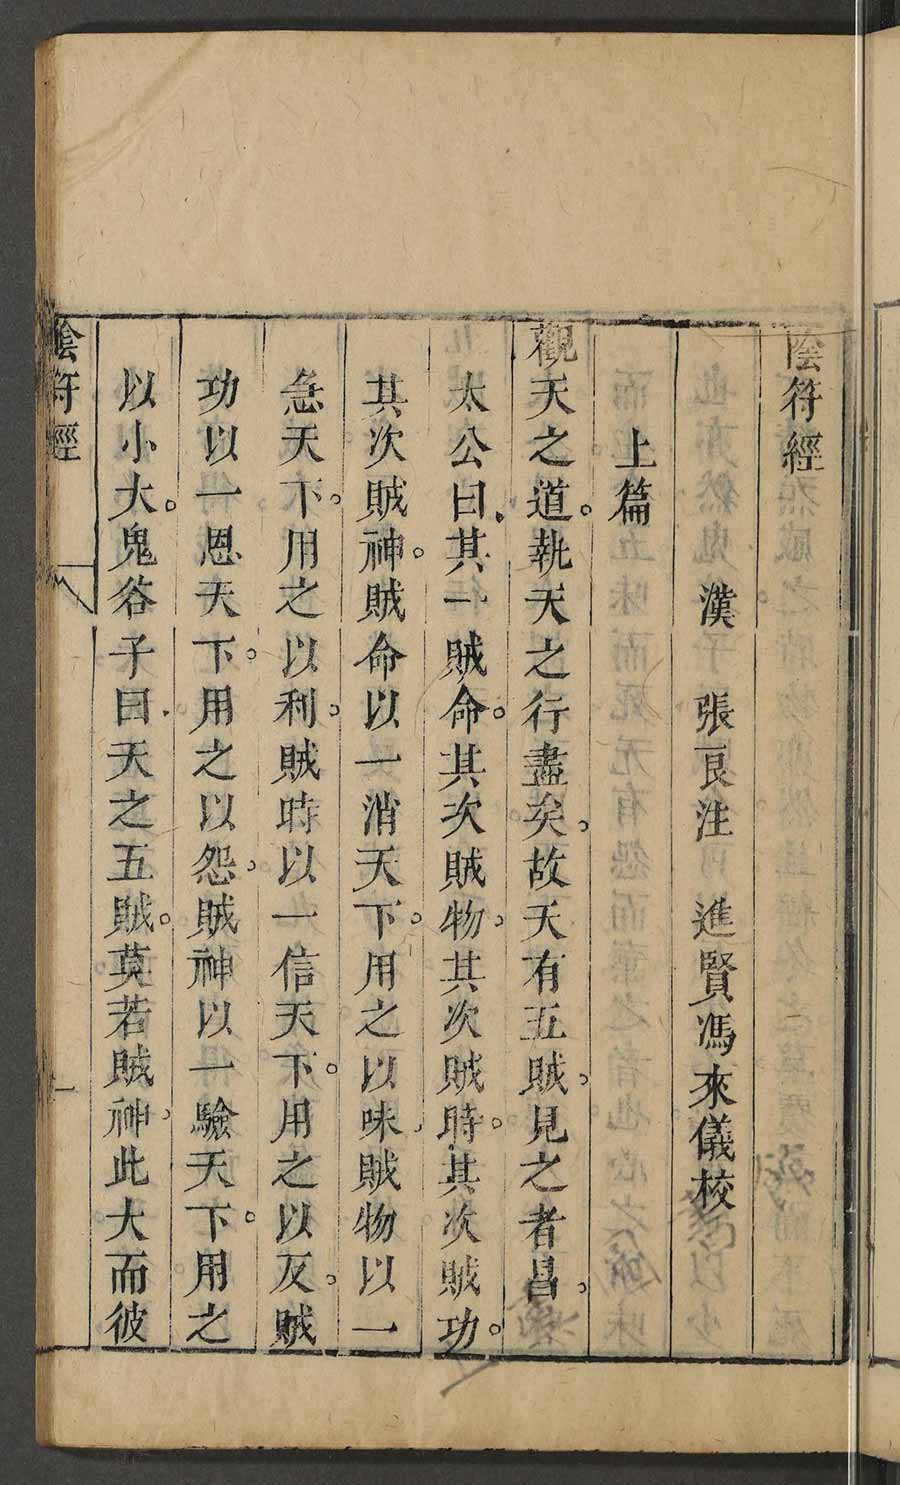 陰符經
漢 張良注 進賢馮來儀校
上篇
觀天之道。執天之行盡矣。故天有五賊。見之者昌。
太公曰。其一賊命。其次賊物。其次賊時。其次賊功。
其次賊神。賊命以一消天下。用之以味。賊物以一
急天下。用之以利。賊時以一信天下。用之以反。賊
功以一恩天下。用之以怨。賊神以一驗天下。用之
以小大。鬼谷子曰。天之五賊。莫若賊神。此大而彼
陰符經 一